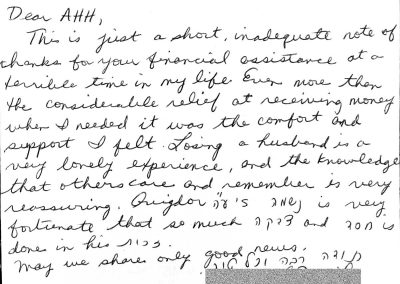 Dear AHH,
This is just a short, inadequate note of
thanks for your financial assistance at a
terrible time in my life. Even more then
the considerable relief at receiving money
when I needed it was the comfort and
support I felt. Losing a husband is a
very lonely experience, and the knowledge
that others care and remember is very
reassuring. Avigdor נשמה is very
fortunate that so much צדקה and חסד is
done in his זכות.
May we share only good news.
תודה רבה